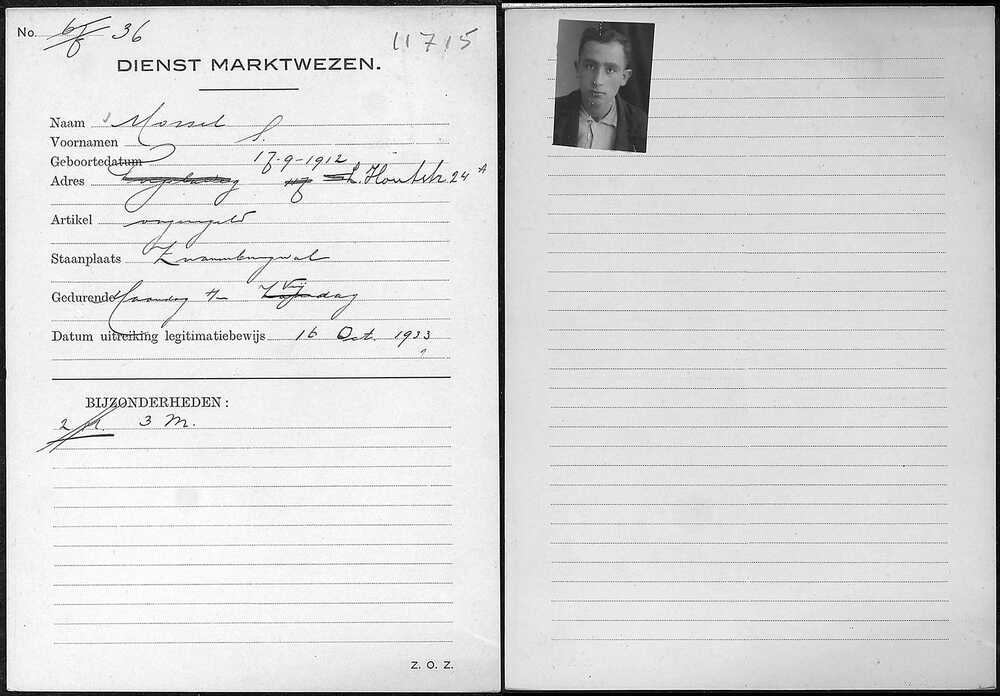 No. 36
11715
DIENST MARKTWEZEN.
Naam Mossel
Voornamen S.
Geboortedatum 17-9-1912
Adres L. Houtstr. 24 A
Artikel
Staanplaats Zwanenburgwal
Gedurende Maandag t/m Vrijdag
Datum uitreiking legitimatiebewijs 16 Oct. 1933
BIJZONDERHEDEN:
2 M. 3 M.
Z. O. Z.